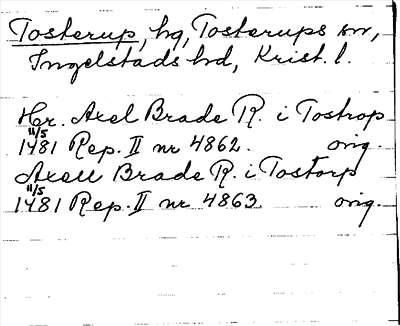 Tosterup, hg, Tosterups sn,
Ingelstads hd, Krist. l.
Hr. Axel Brade R. i Tostrop
11/5
1481 Rep. II nr 4862. orig.
Axell Brade R. i Tostorp
11/5
1481 Rep. II nr 4863. orig.